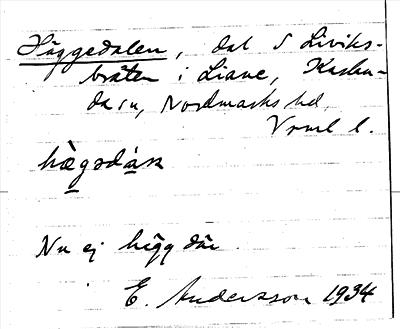 Häggedalen, dal S Liviks-
bråten i Liane, Karlan-
da sn, Nordmarks hd,
Vrml l.
hägsdàɳ
Nu ej hägg där.
E. Andersson 1934